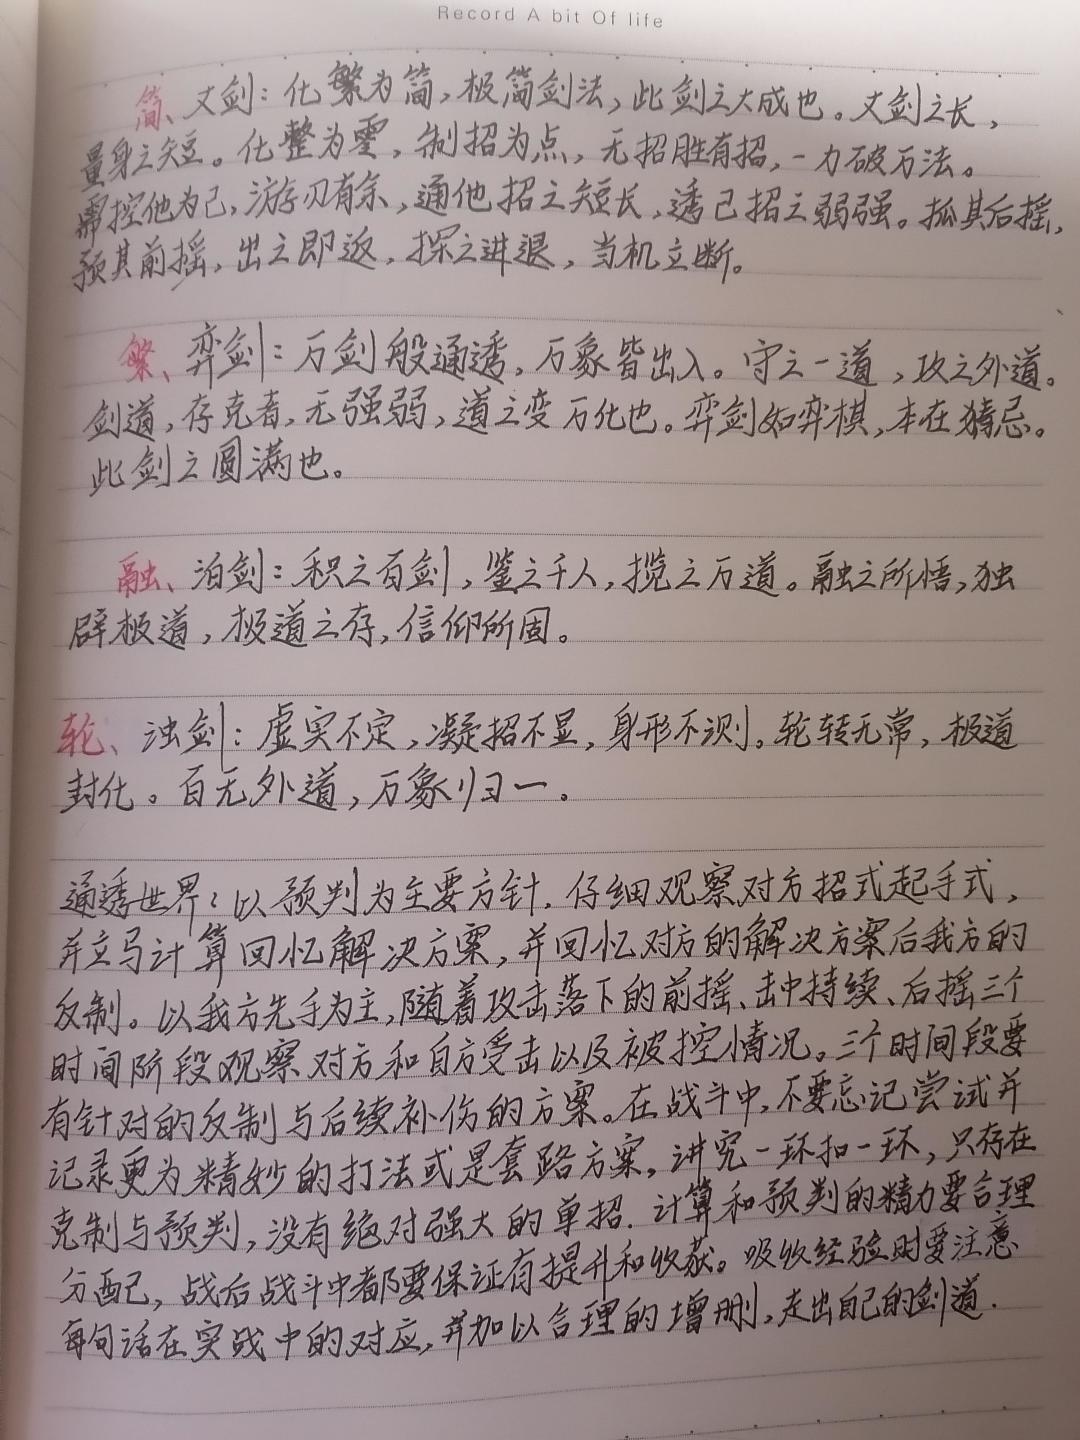 Record A bit Of life
简、丈剑：化繁为简，极简剑法，此剑之大成也。丈剑之长，
量身之短。化整为零，制招为点，无招胜有招，一力破万法。
需控他为己，游刃有余，通他招之短长，透己招之弱强。抓其后摇，
预其前摇，出之即返，探之进退，当机立断。
繁、弈剑：万剑般通透，万象皆出入。守之一道，攻之外道。
剑道，存克者，无强弱，道之变万化也。弈剑如弈棋，本在猜忌。
此剑之圆满也。
融、泊剑：积之百剑，鉴之千人，揽之万道。融之所悟，独
辟极道，极道之存，信仰所固。
轮、浊剑：虚实不定，凝招不显，身形不测。轮转无常，极道
封化。百无外道，万象归一。
通透世界：以预判为主要方针．仔细观察对方招式起手式，
并立马计算回忆解决方案，并回忆对方的解决方案后我方的
反制。以我方先手为主，随着攻击落下的前摇、击中持续、后摇三个
时间阶段观察对方和自方受击以及被控情况。三个时间段要
有针对的反制与后续补伤的方案。在战斗中，不要忘记尝试并
记录更为精妙的打法或是套路方案，讲究一环扣一环，只存在
克制与预判，没有绝对强大的单招．计算和预判的精力要合理
分配，战后战斗中都要保证有提升和收获。吸收经验时要注意
每句话在实战中的对应，并加以合理的增删，走出自己的剑道．